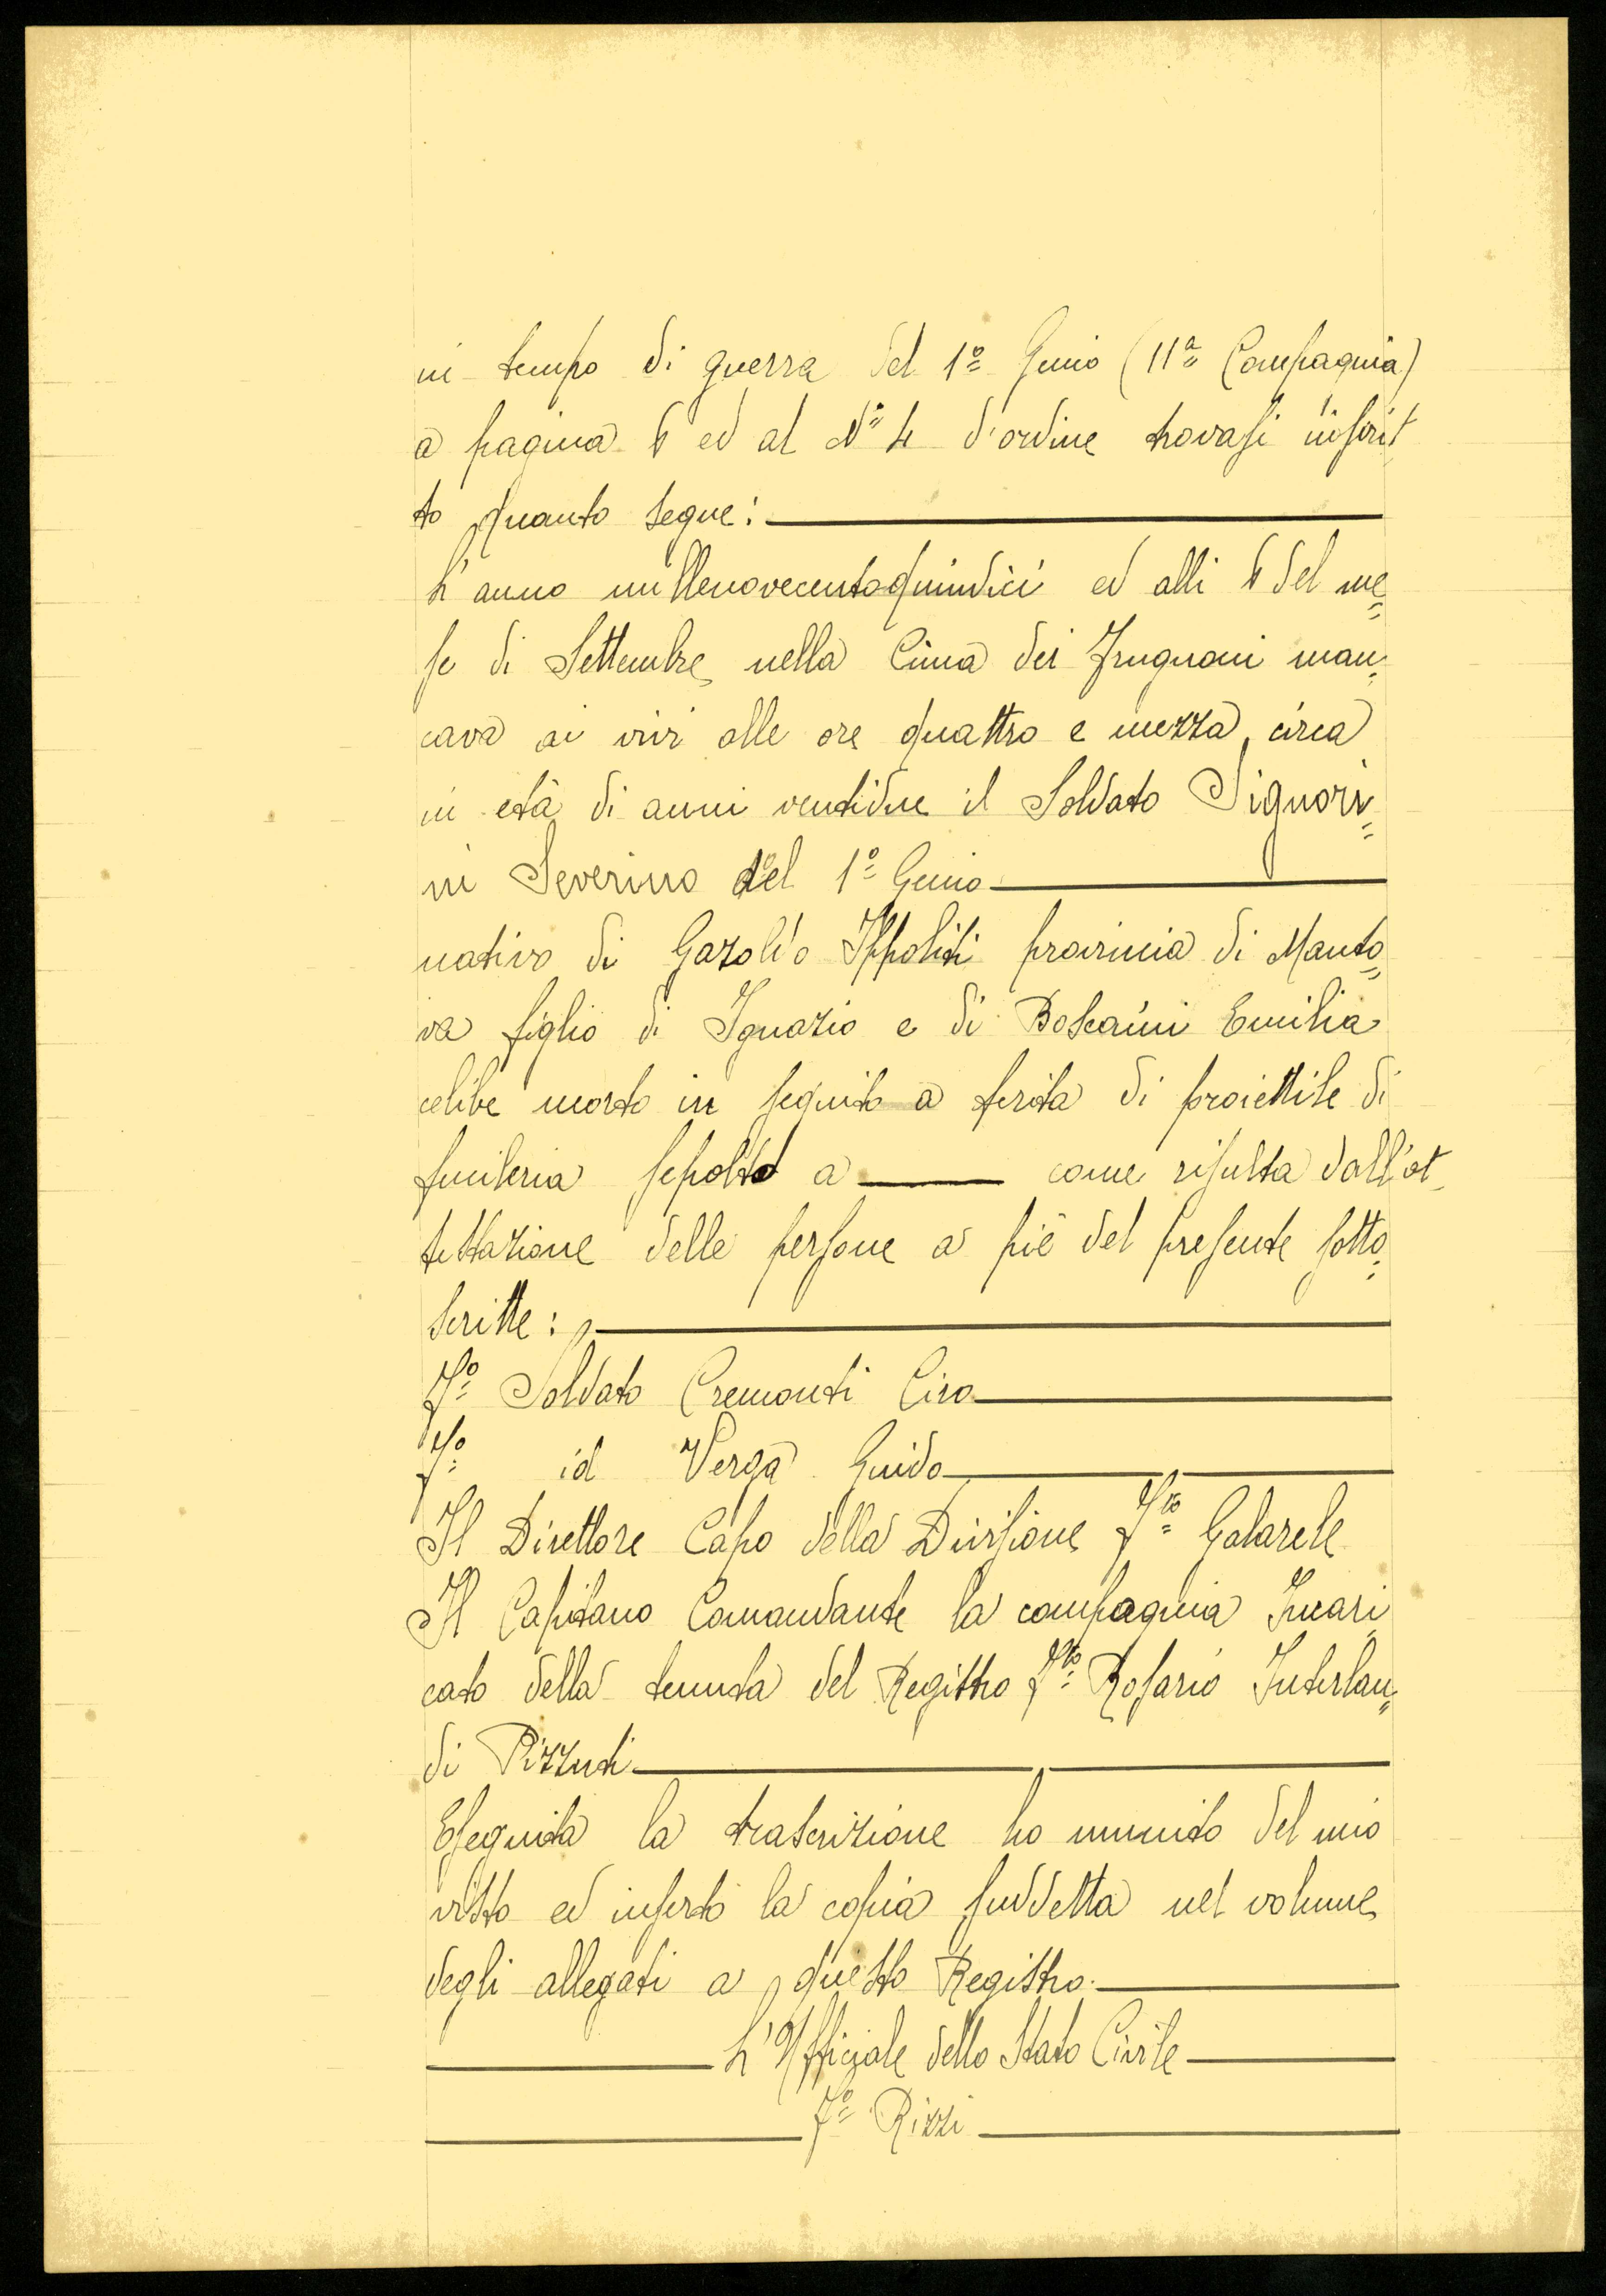 in tempo di guerra del 1º Genio (11ª Compagnia)
a pagina 4 ed al Nº 4 d'ordine trovasi inscrit
to quanto segue:
L'anno millenovecentoquindici ed alli 4 del me=
se di Settembre nella Cima dei Frugnoni man=
cava ai vivi alle ore quattro e mezza, circa
in età di anni ventidue il Soldato Signori=
ni Severino del 1º Genio
nativo di Gazoldo Ippoliti provincia di Manto=
va figlio di Ignazio e di Boscaini Emilia
celibe morto in seguito a ferita di proiettile di
fucileria sepolto a come risulta dall'at
testazione delle persone a piè del presente sotto=
scritte:
Fº Soldato Cremonti Ciro
Fº id Verga Guido
Il Direttore Capo della Divisione Fto
Il Capitano Comandante la compagnia Incari
cato della tenuta del Registro Fto Rosario Interlan=
di Pizzuti
Eseguita la trascrizione ho munito del mio
visto ed inserto la copia suddetta nel volume
degli allegati a questo Registro.
L'Ufficiale dello Stato Civile
Fº Rizzi